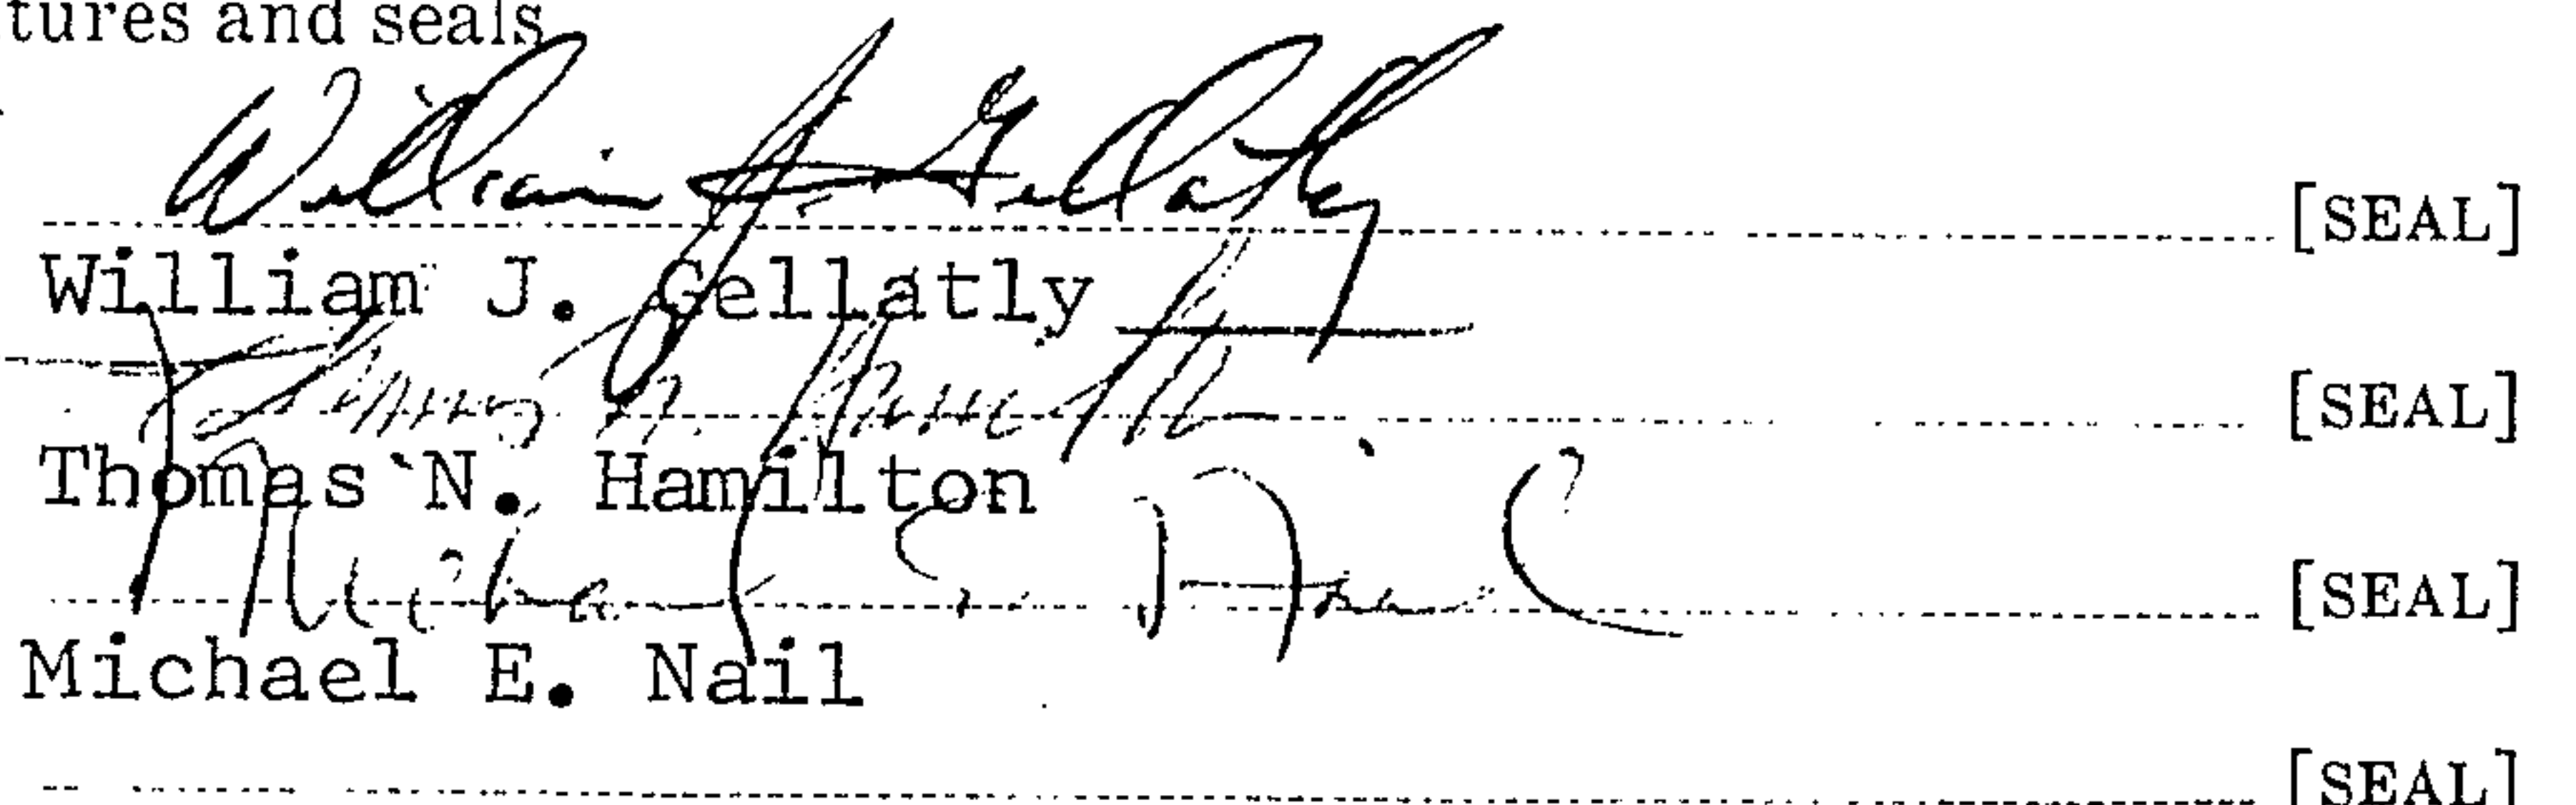 tures and seals
William J. Gellatly [SEAL]
William J. Gellatly
[SEAL]
Thomas N. Hamilton
Michael E. Nail [SEAL]
Michael E. Nail
[SEAL]